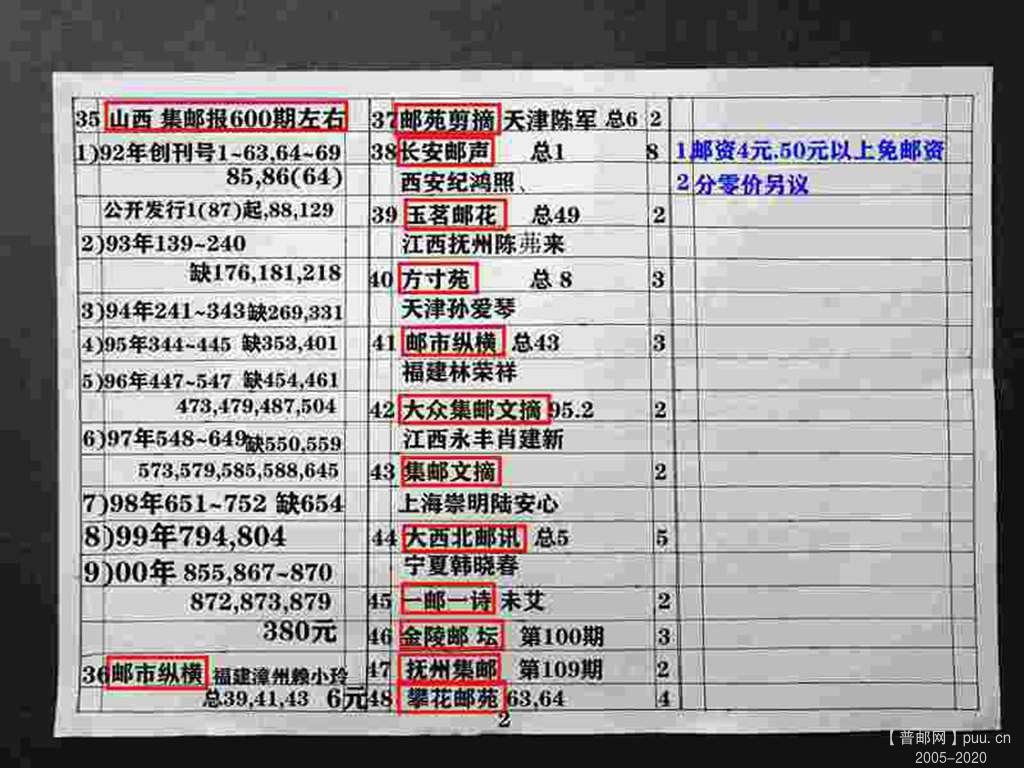 35 山西 集邮报600期左右
1)92年创刊号1~63,64~69
85,86(64)
公开发行1(87)起,88,129
2)93年139~240
缺176,181,218
3)94年241~343缺269,331
4)95年344~445 缺353,401
5)96年447~547 缺454,461
473,479,487,504
6)97年548~649缺550,559
573,579,585,588,645
7)98年651~752 缺654
8)99年794,804
9)00年 855,867~870
872,873,879
380元
36邮市纵横 福建漳州赖小玲
总39,41,43 6元
37邮苑剪摘 天津陈军 总6 2
38长安邮声 总1 8
西安纪鸿照、
39 玉茗邮花 总49 2
江西抚州陈茀来
40 方寸苑 总 8 3
天津孙爱琴
41 邮市纵横 总43 3
福建林荣祥
42 大众集邮文摘 95.2 2
江西永丰肖建新
43 集邮文摘 2
上海崇明陆安心
44 大西北邮讯 总5 5
宁夏韩晓春
45 一邮一诗 未艾 2
46 金陵邮 坛 第100期 3
47 抚州集邮 第109期 2
48 攀花邮苑 63,64 4
1.邮资4元.50元以上免邮资
2 分零价另议
2
【普邮网】puu.cn
2005-2020